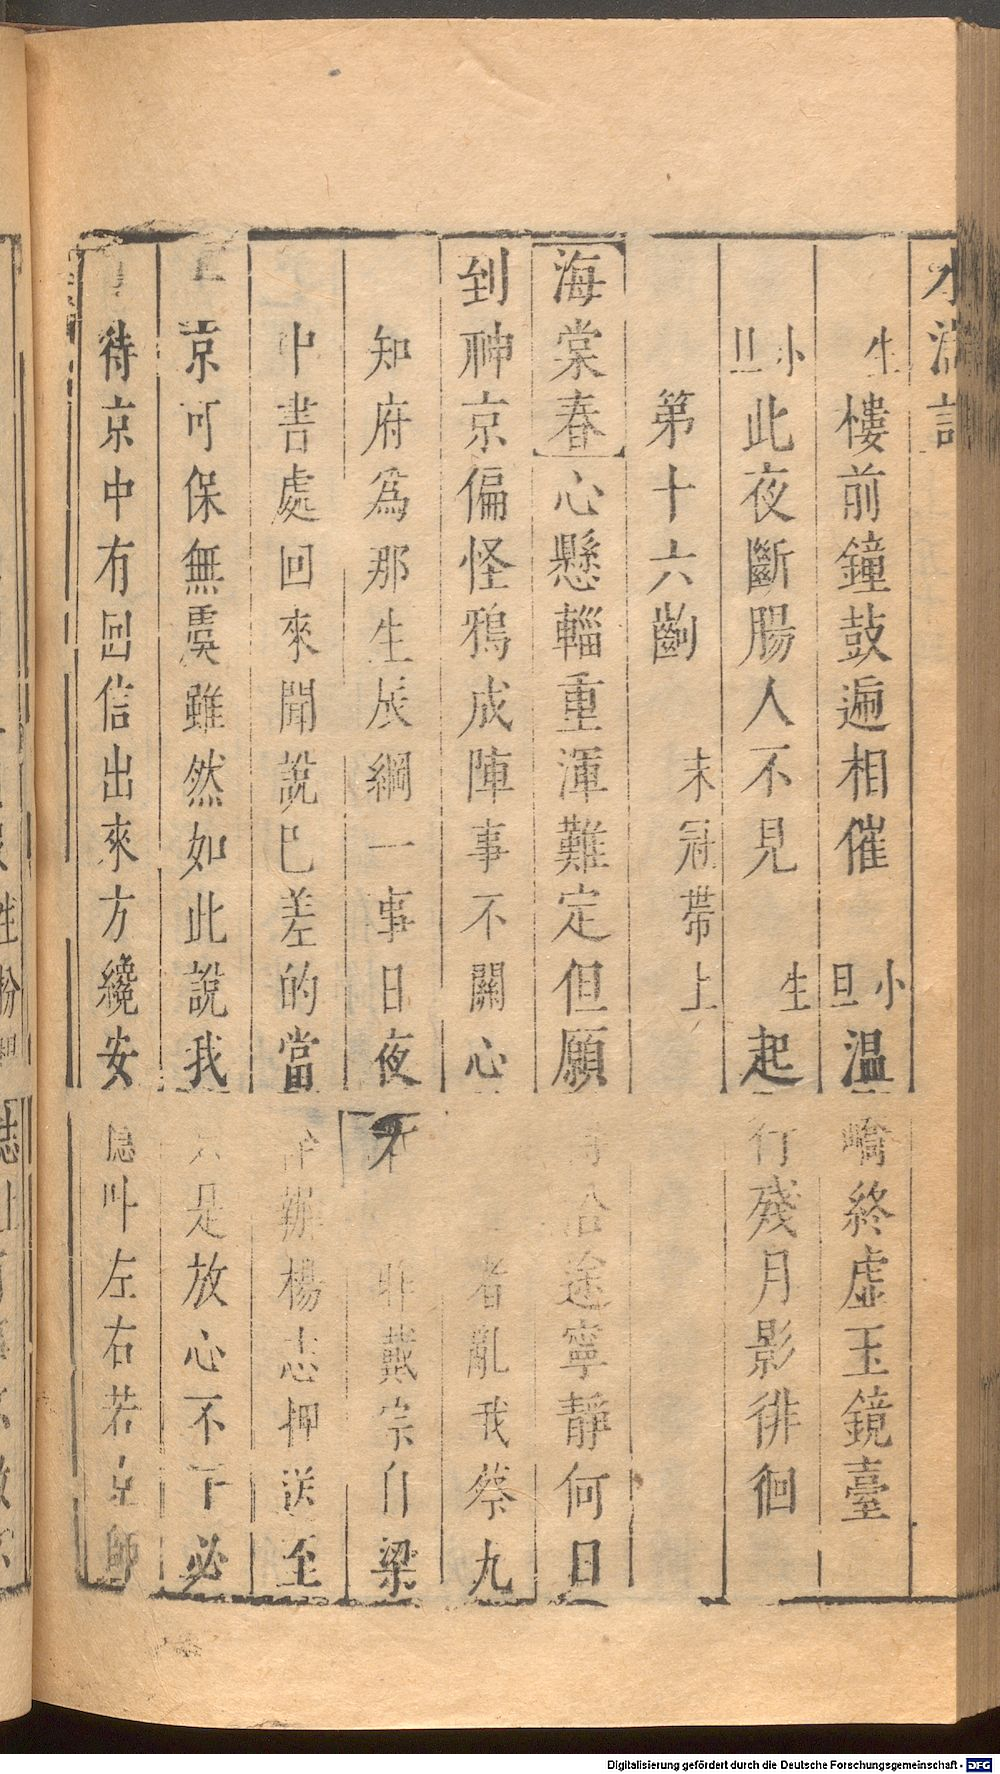 水滸記
生樓前鐘鼓遍相催小旦温嶠終虛玉鏡臺
小旦此夜斷腸人不見生起行殘月影徘徊
第十六齣末冠帶上
海棠春心懸輜重渾難定但願 恰途寧靜何日
到神京偏怪鴉成陣事不關心 者亂我蔡九
知府爲那生辰綱一事日夜不 非戴宗自梁
中書處回來聞說巳差的當 辦楊志押送至
京可保無虞雖然如此說我只是放心不下必
待京中有回信出來方纔安 叶左右若京師
Digitalisierung gefördert durch die Deutsche Forschungsgemeinschaft - DFG